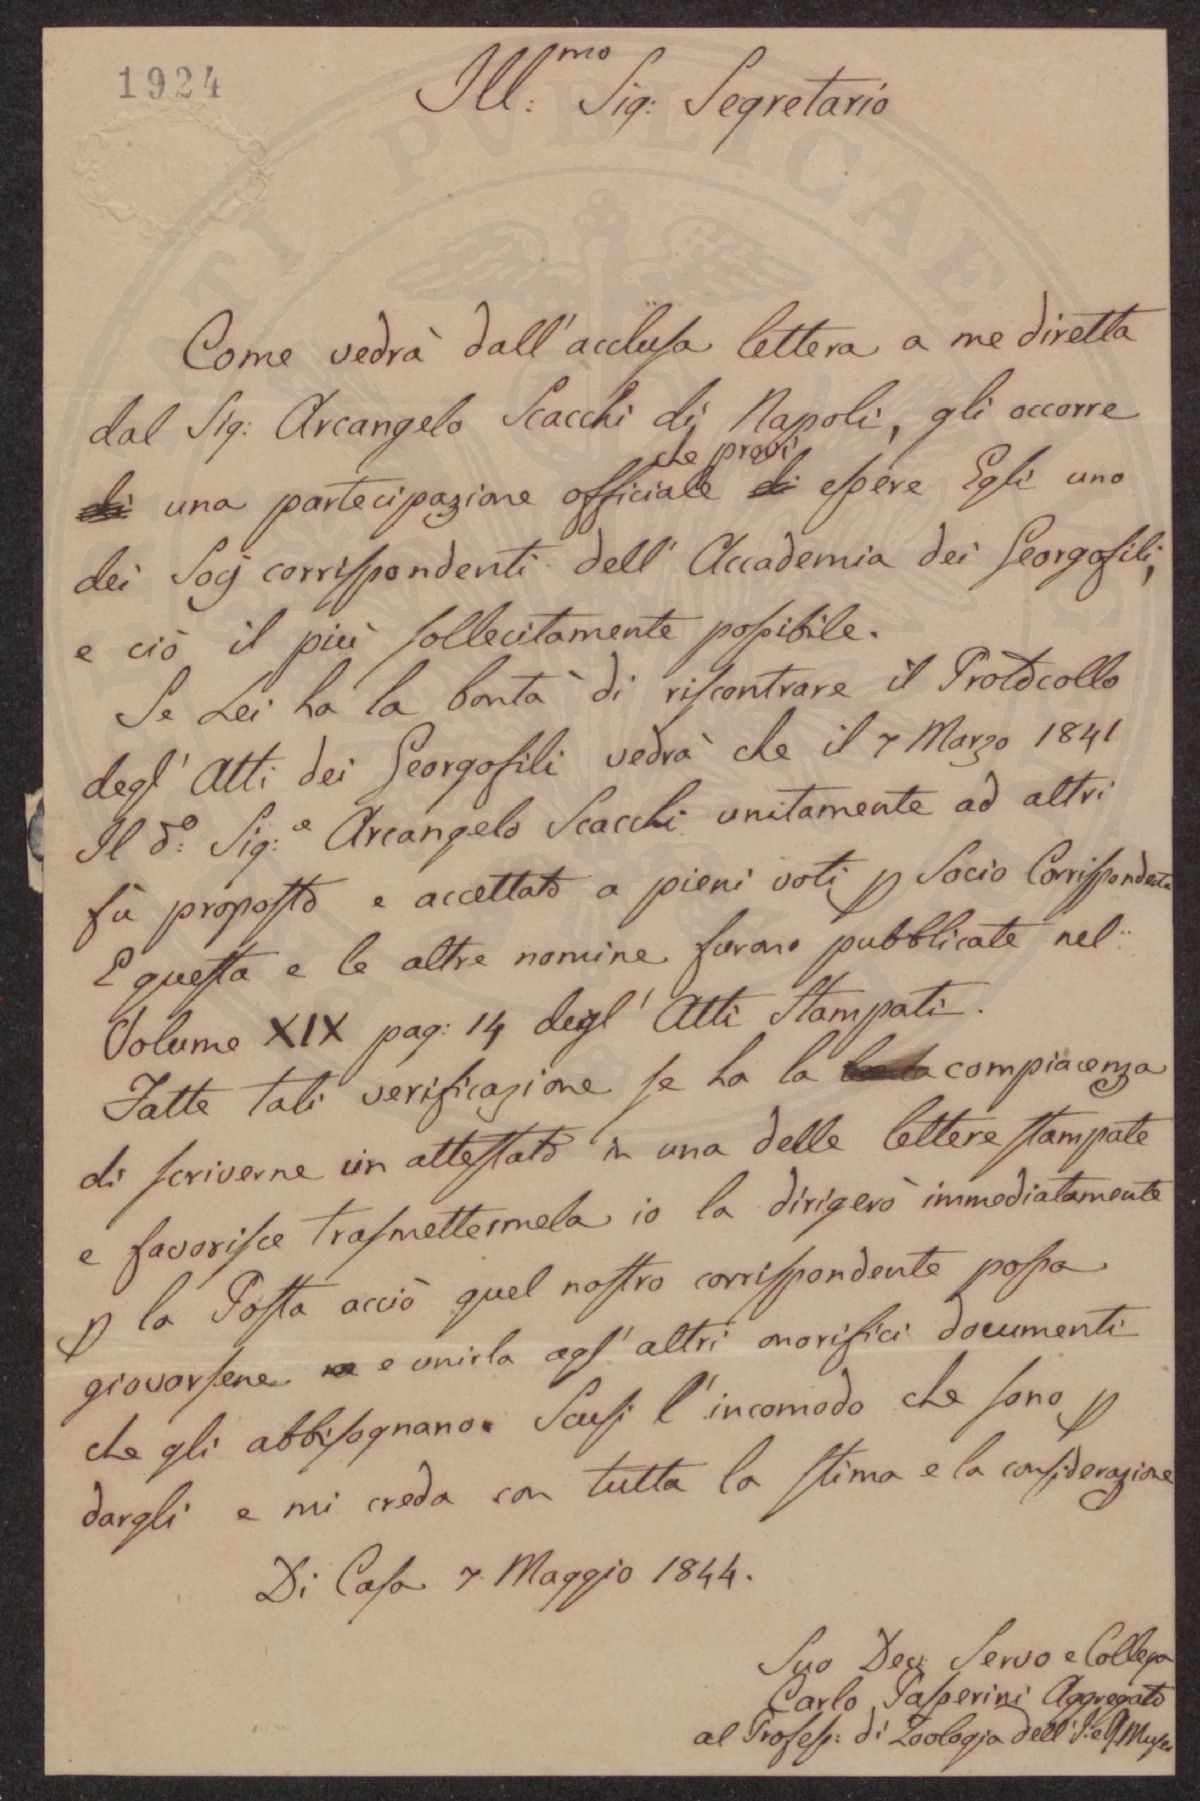 1924
Ill:mo Sig: Segretario
PUBLICAE
Come vedrà dall'acclusa lettera a me diretta
dal Sig: Arcangelo Scacchi di Napoli, gli occorre
che provi
di una partecipazione officiale di essere Egli uno
dei Socj corrispondenti dell' Accademia dei Georgofili,
e ciò il più sollecitamente possibile.
Se Lei ha la bontà di riscontrare il Protocollo
degl' Atti dei Georgofili vedrà che il 7 Marzo 1841
Il do: Sig:e Arcangelo Scacchi unitamente ad altri
fù proposto e accettato a pieni voti p Socio Corrispondente
E questa e le altre nomine furono pubblicate nel
Volume XIX pag: 14 degl' Atti Stampati.
Fatte tali verificazione se ha la compiacenza
di scriverne un attestato in una delle lettere stampate
e favorisce trasmettermela io la dirigerò immediatamente
p la Posta acciò quel nostro corrispondente possa
giovarsene e unirla agl' altri onorifici documenti
che gli abbisognano. Scusi l'incomodo che sono p
dargli e mi creda con tutta la stima e la considerazione
Di Casa 7 Maggio 1844.
Suo Dev: Servo e Collega
Carlo Passerini Aggregato
al Profess: di Zoologia dell' I. e R. Museo